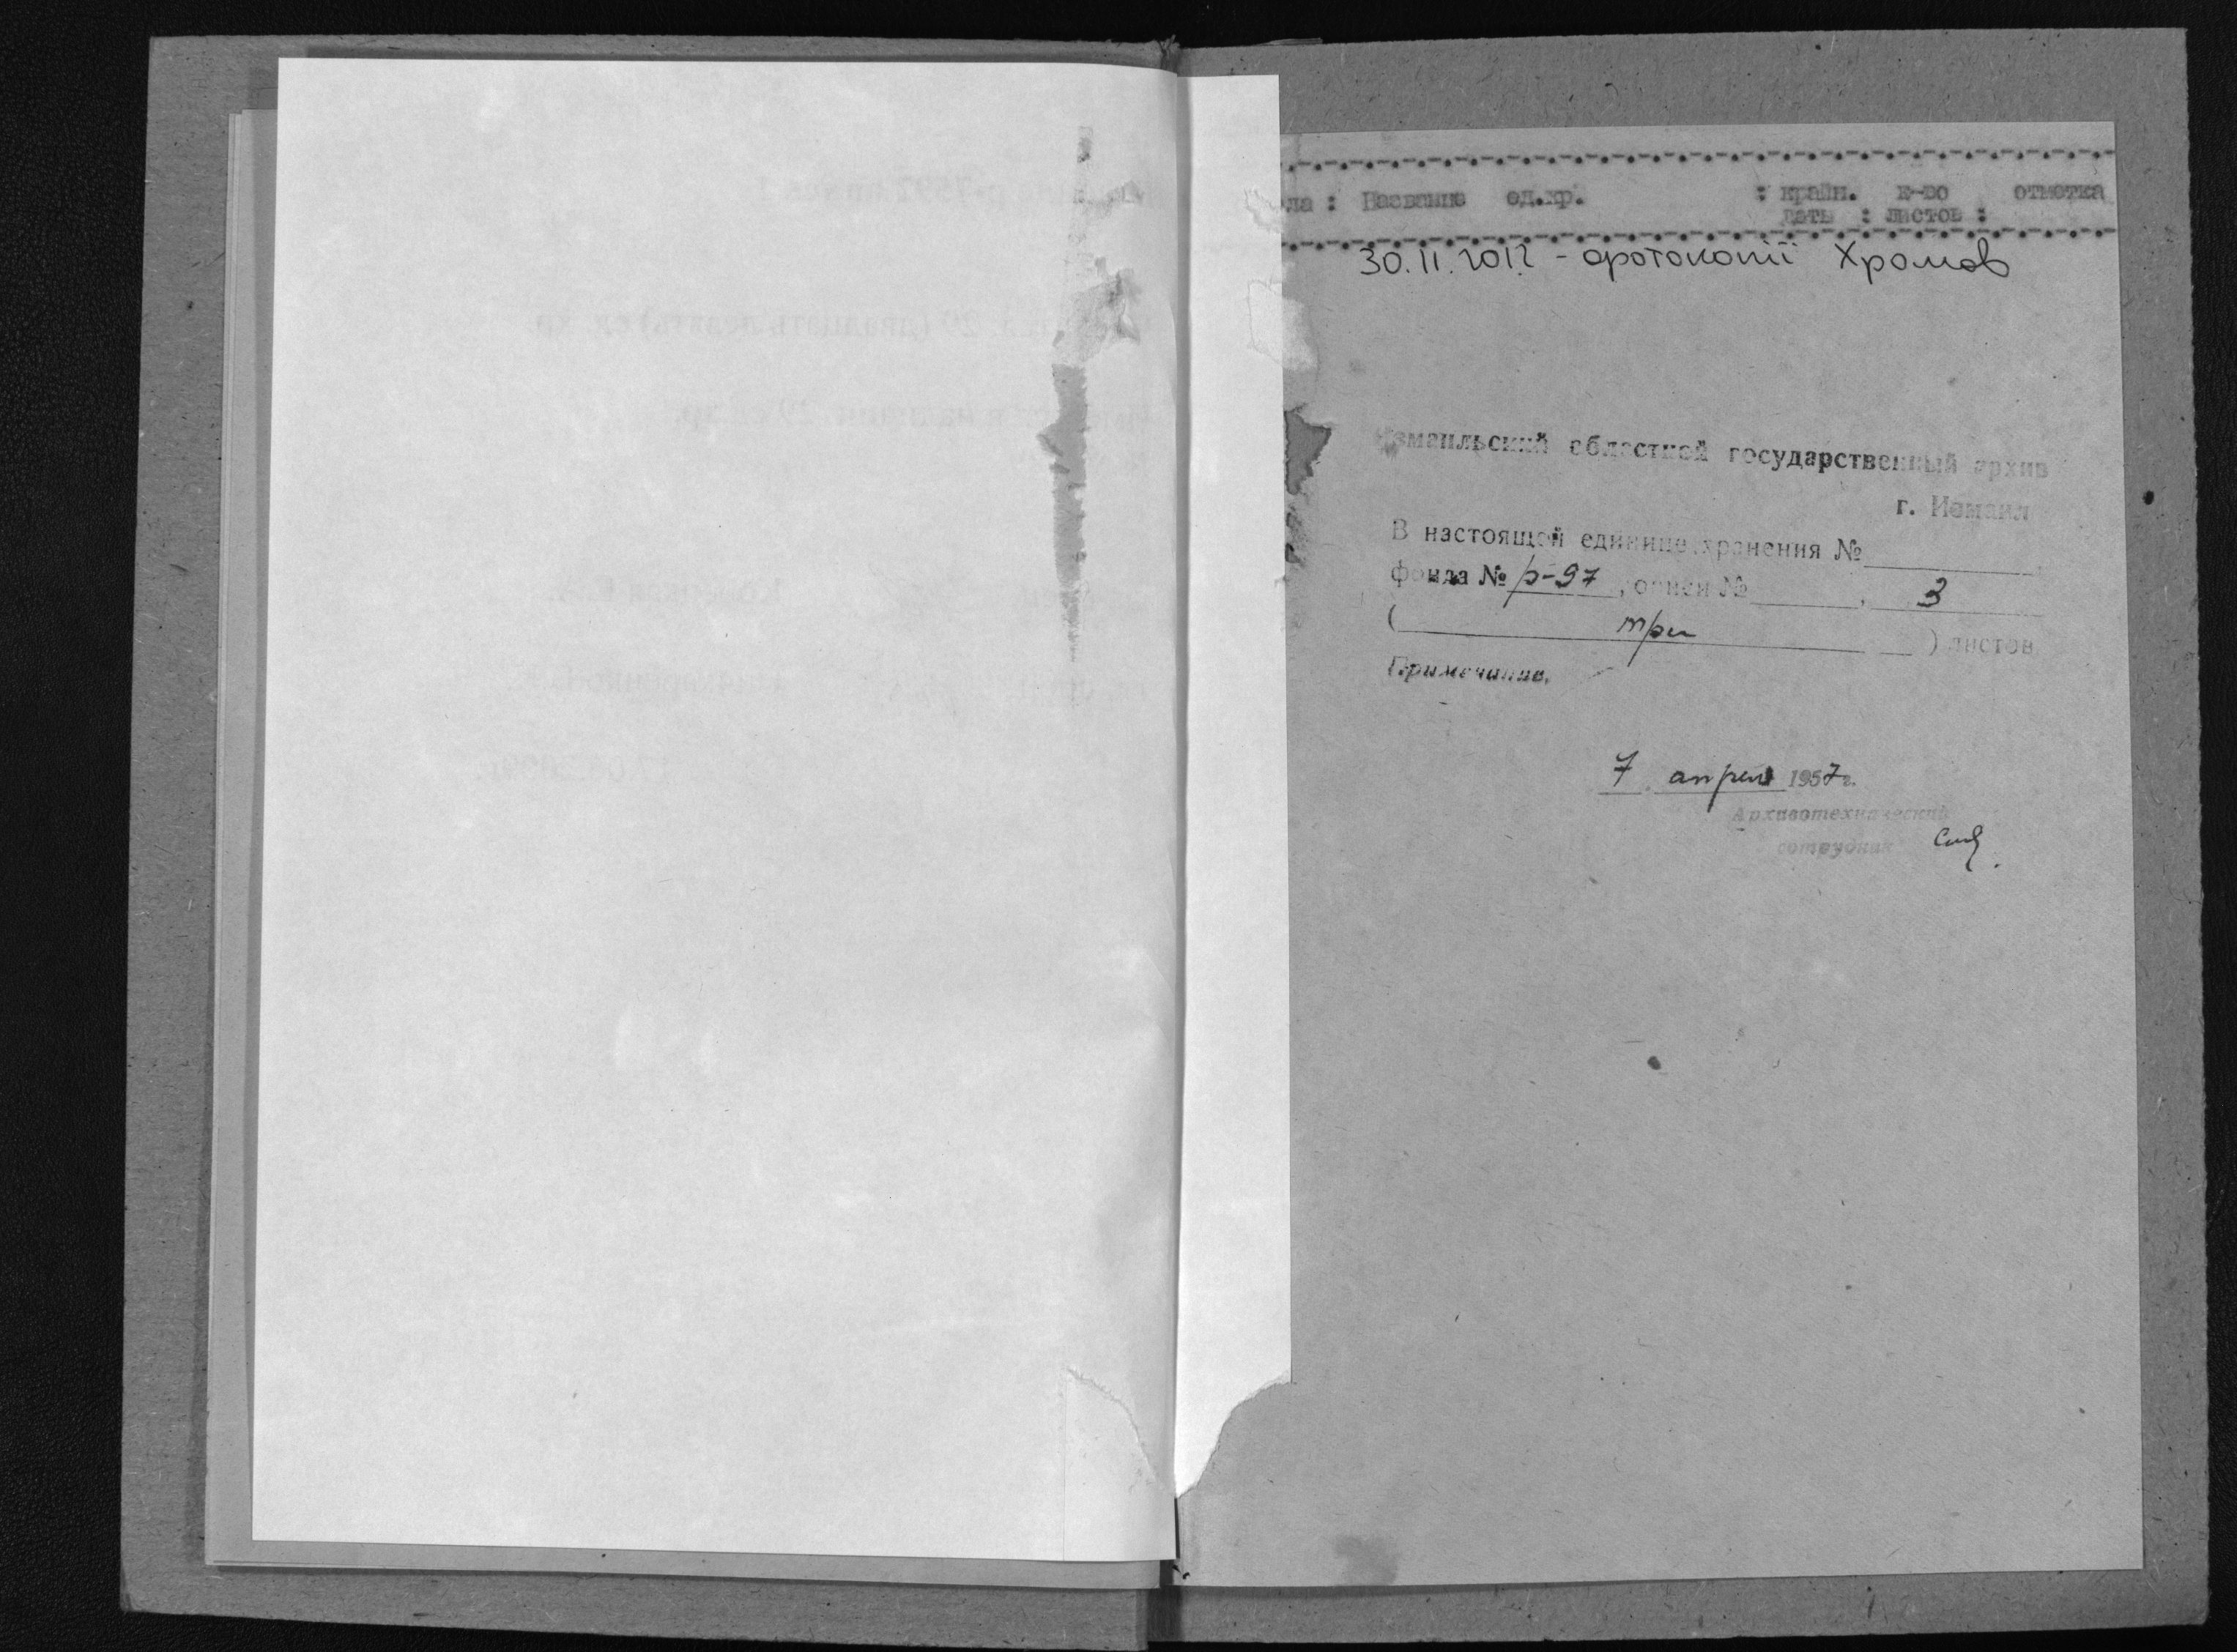 ла : Название ед.хр. : крайн. к-во отметка
даты : листов :
30.11.2012 - фотокопії Хромов
Измаильский областной государственный архив
г. Измаил
В настоящей единице хранения №
фонда № р-97, описи № , 3
( три ) листов
Примечание.
7 апреля 1957 г.
Архивотехнический
сотрудник